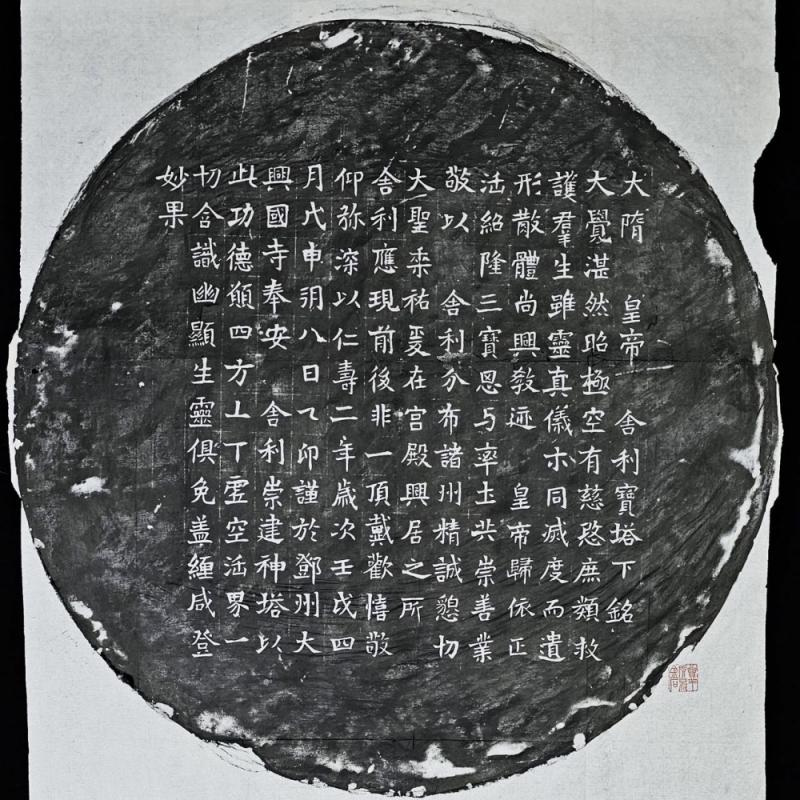 大隋 皇帝 舍利寶塔下銘
大覺湛然昭極空有慈愍庶類救
護羣生雖靈真儀亦同滅度而遺
形散體尚興教迹 皇帝歸依正
法紹隆三寶思与率土共崇善業
敬以 舍利分布諸州精誠懇切
大聖垂祐爰在宮殿興居之所
舍利應現前後非一頂戴歡憘敬
仰弥深以仁壽二年歲次壬戌四
月戊申朔八日乙卯謹於鄧州大
興國寺奉安 舍利崇建神塔以
此功德願四方上下虛空法界一
切含識幽顯生靈俱免蓋纏咸登
妙果